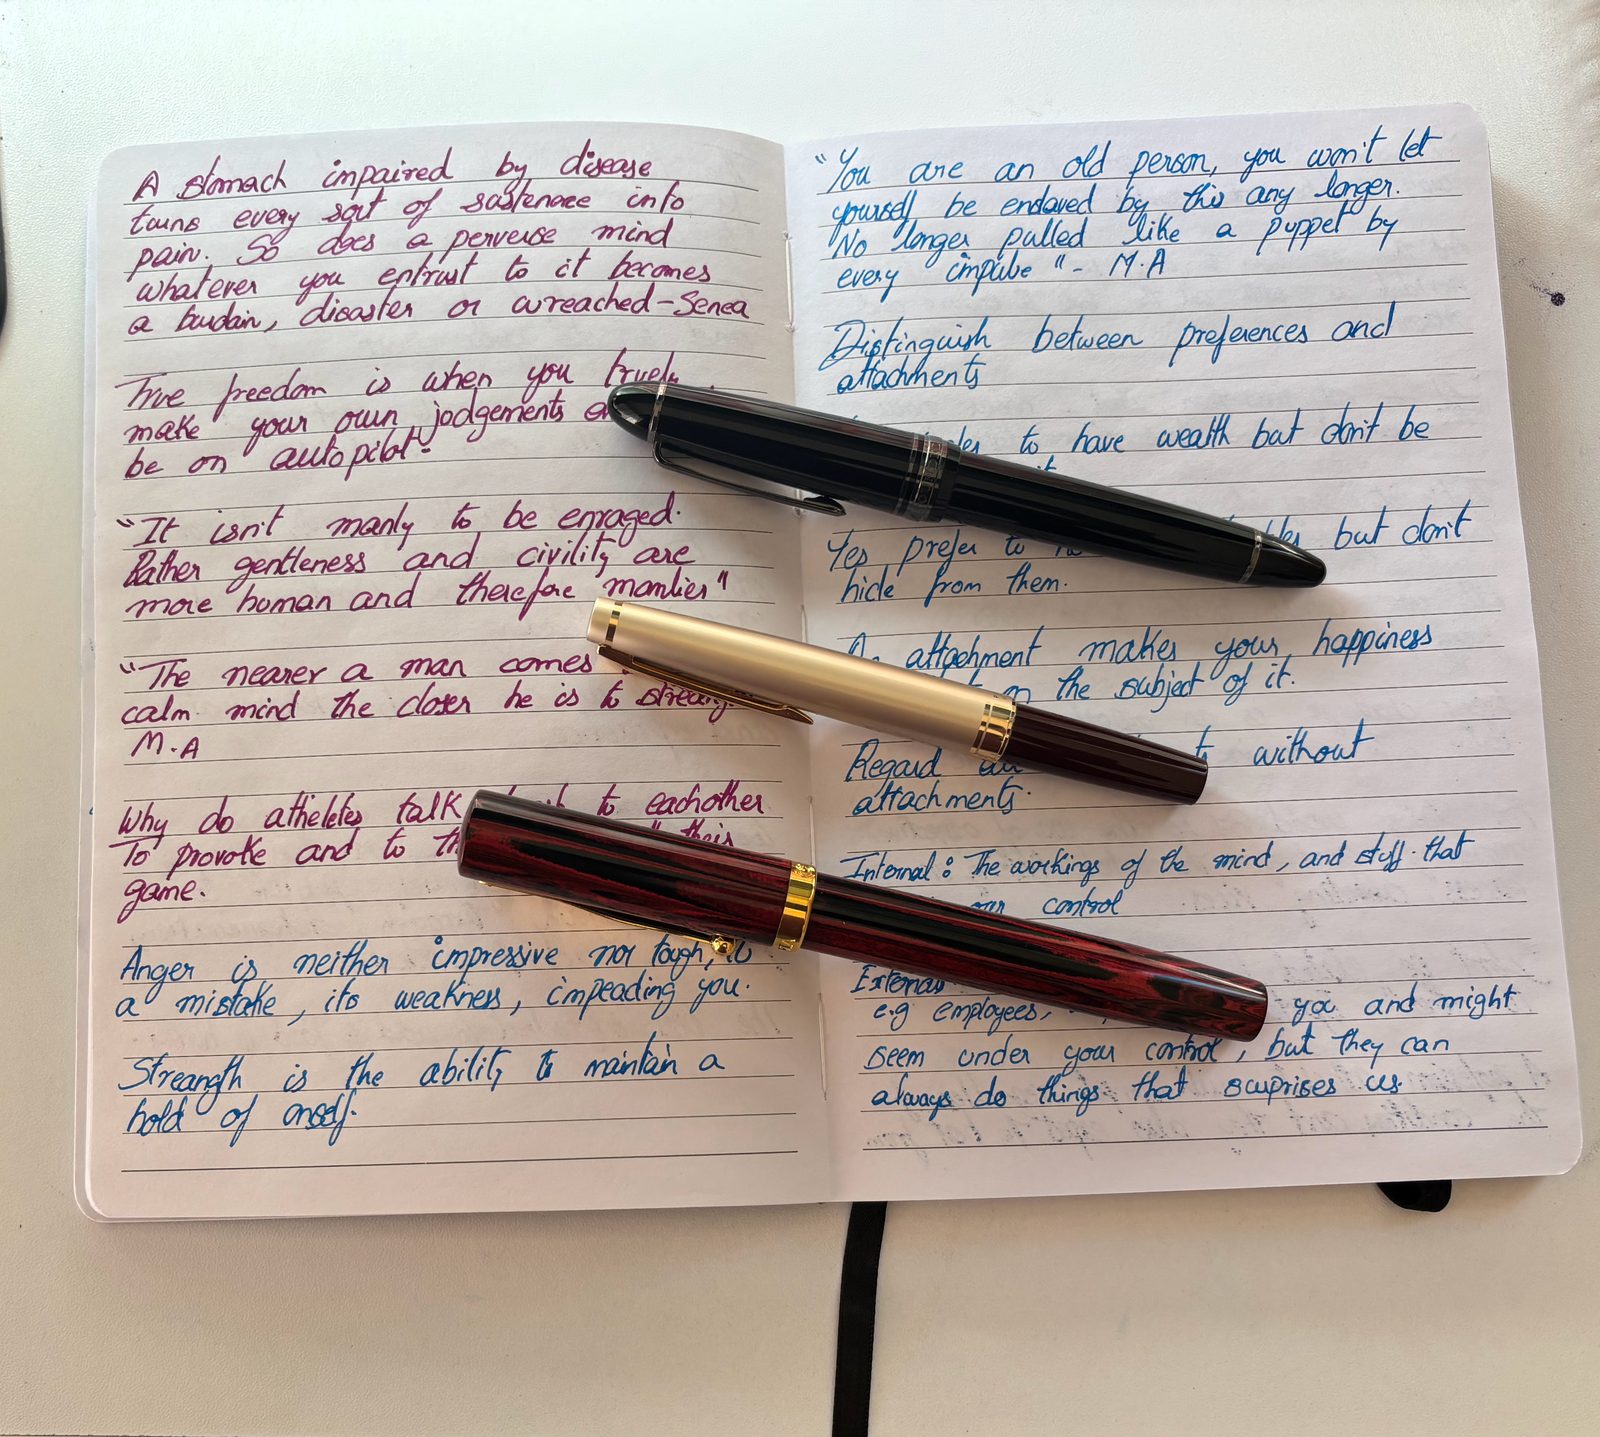 A stomach impaired by disease
turns every sort of sustenace into
pain. So does a perverse mind
whatever you entrust to it becomes
a burdain, disaster or wreached - Senea
True freedom is when you truely
make your own jodgements
be on autopilot.
"It isn't manly to be enraged.
Rather gentleness and civility are
more human and therefore manlier"
"The nearer a man comes
calm mind the closer he is to
M.A
Why do atheletes talk to eachother
To provoke and to their
game.
Anger is neither impressive nor tough,
a mistake, its weakness, impeading you.
Streangth is the ability to maintain a
hold of onself.
"You are an old person, you won't let
yourself be enslaved by this any longer.
No longer pulled like a puppet by
every impulse" - M.A
Distinguish between preferences and
attachments
to have wealth but don't be
Yes prefer to but don't
hide from them.
attachment makes your happiness
on the subject of it.
Regard without
attachments.
Internal: The workings of the mind, and stuff that
our control
External
e.g employees, you and might
seem under your control, but they can
always do things that surprises us.